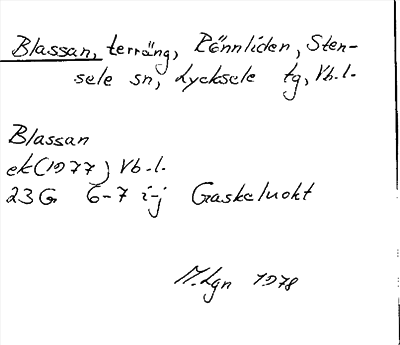 Blassan, terräng, Rönnliden, Sten-
sele sn, Lycksele tg, Vb.l.
Blassan
ek(1977) Vb.l.
23G 6-7 i-j Gaskeluokt
M.Lgn 1978